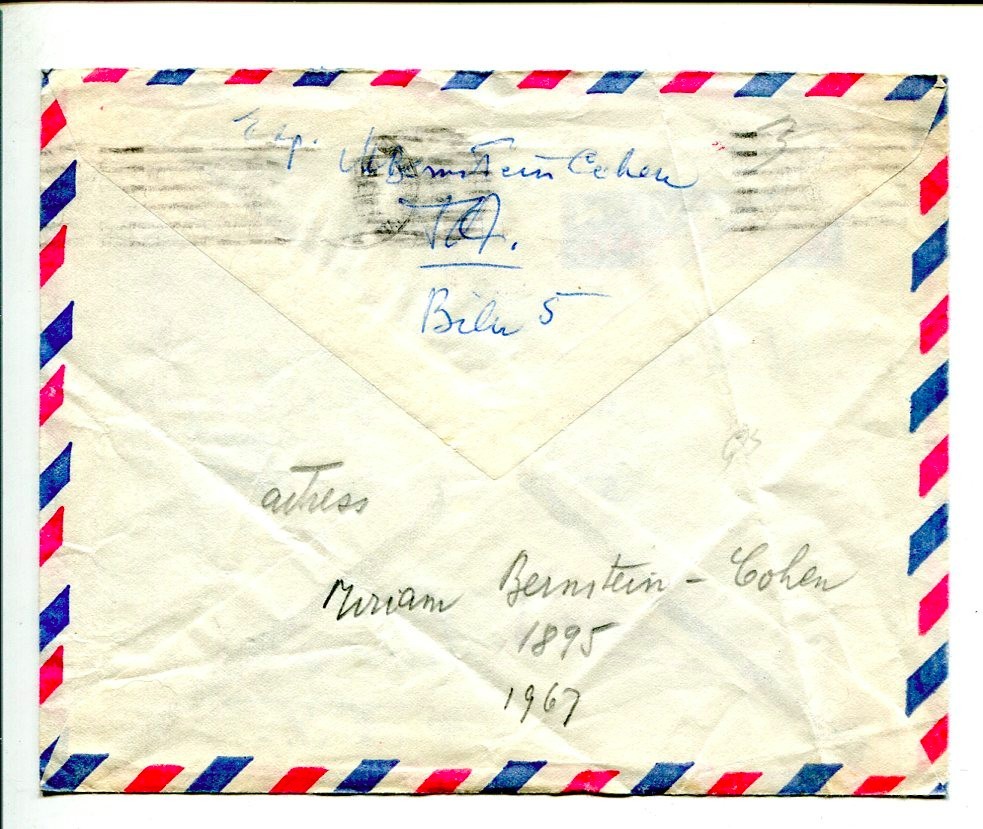 Exp. M. Bernstein Cohen
T.A.
Bilu 5
actress
Miriam Bernstein - Cohen
1895
1967